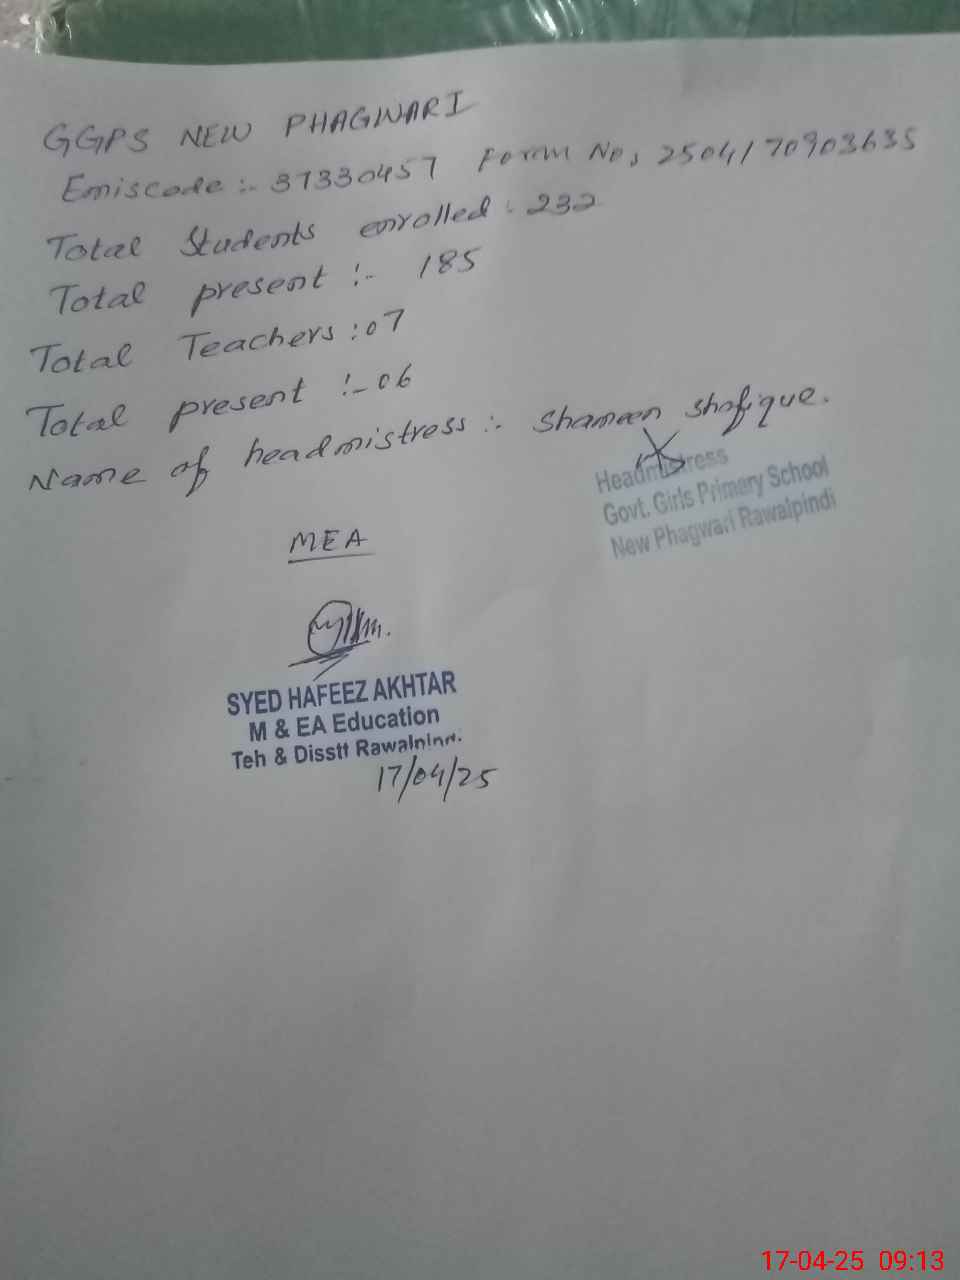 GGPS NEW PHAGWARI
Emiscode :- 37330457 Form No, 2504170903635
Total Students enrolled : 232
Total present :- 185
Total Teachers : 07
Total present :- 06
Name of headmistress :- Shameen Shafique.
Headmistress
Govt. Girls Primary School
New Phagwari Rawalpindi
MEA
SYED HAFEEZ AKHTAR
M & EA Education
Teh & Disstt Rawalpindi.
17/04/25
17-04-25 09:13